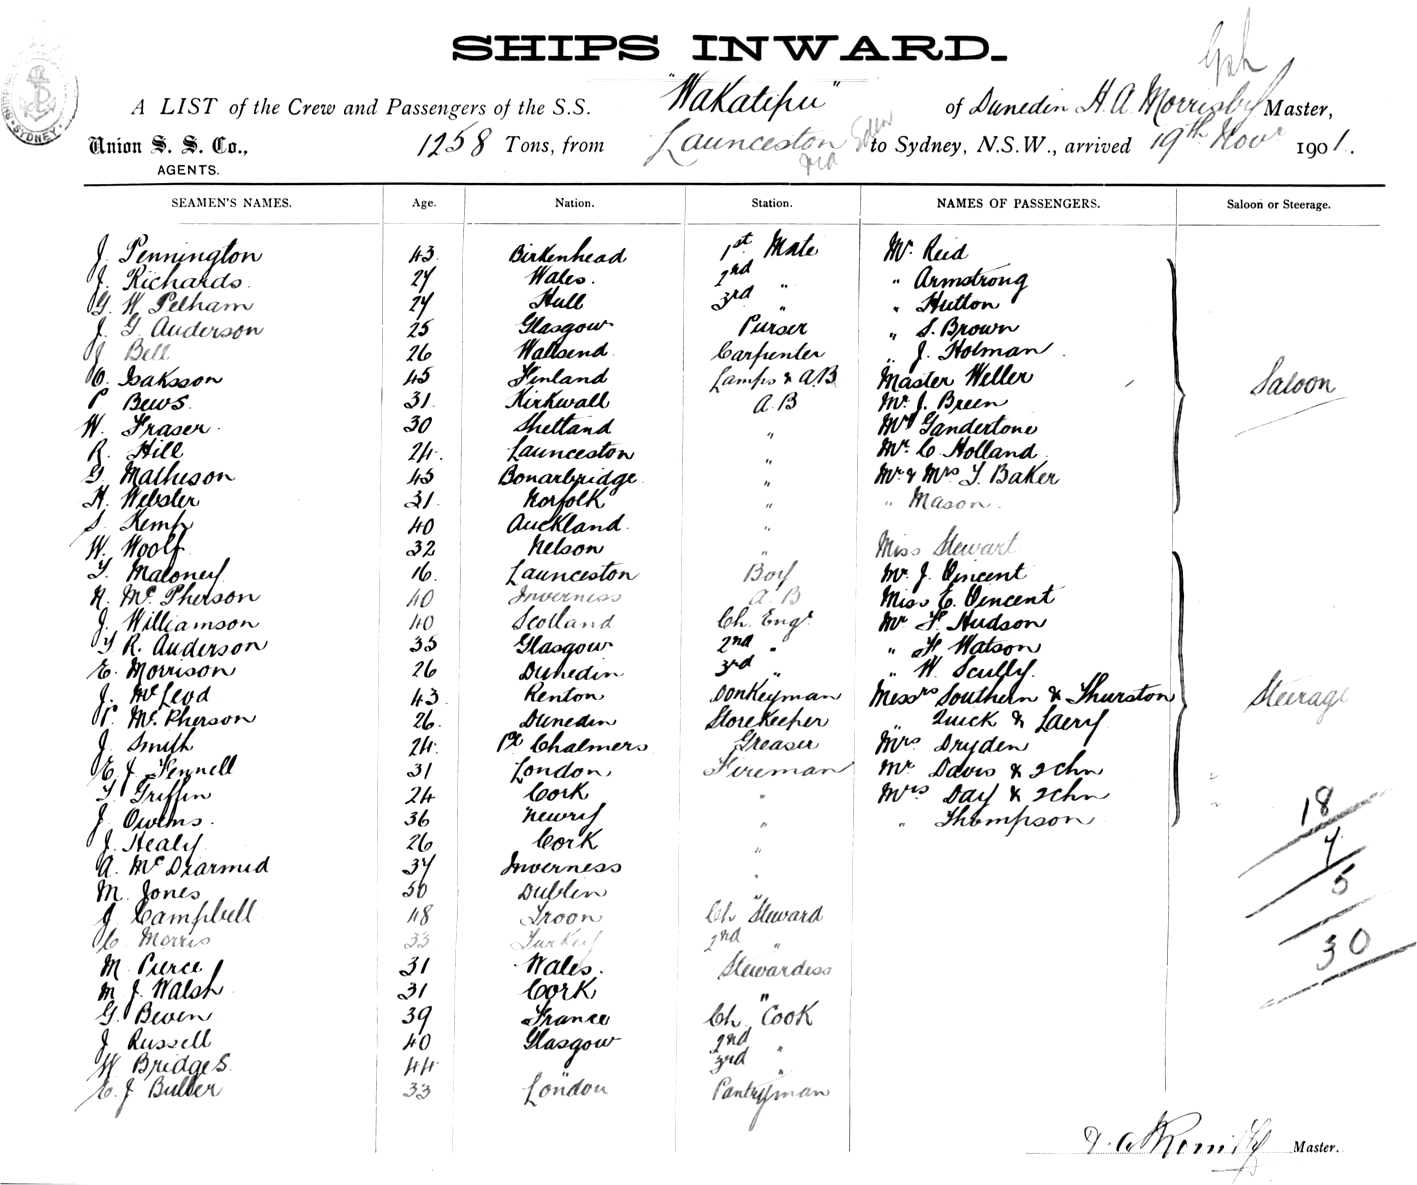 SHIPS INWARD.
A LIST of the Crew and Passengers of the S.S. "Wakatipu" of Dunedin H. A. Morrisby Master,
Union S. S. Co., 1258 Tons, from Launceston via Eden to Sydney, N.S.W., arrived 19th Novr 1901.
AGENTS.
SYDNEY
SEAMEN'S NAMES. Age. Nation. Station. NAMES OF PASSENGERS. Saloon or Steerage.
J. Pennington 43 Birkenhead 1st Mate Mr Reid
J. Richards 27 Wales. 2nd " " Armstrong
G. W. Pelham 27 Hull 3rd " " Hutton
J. G. Anderson 25 Glasgow Purser " S. Brown
J Bell 26 Wallsend Carpenter " J. Holman
O. Isaksson 45 Finland Lamps & AB Master Weller Saloon
P Bews 31 Kirkwall A.B Mr J. Breen
W. Fraser 30 Shetland " Gandertone
R. Hill 24 Launceston " Mr C. Holland
G. Matheson 45 Bonarbridge " Mr & Mrs T. Baker
H. Webster 31 Norfolk " " Mason
S. Kemp 40 Auckland "
W. Woolf 32 Nelson " Miss Stewart
T. Maloney 16 Launceston Boy Mr J. Vincent
N. McPherson 40 Inverness A B Miss E. Vincent
J. Williamson 40 Scotland Ch. Engr Mr F. Hudson
T R. Anderson 35 Glasgow 2nd " " H Watson
E. Morrison 26 Dunedin 3rd " " W. Scully.
J. McLeod 43 Renton Donkeyman Messrs Southern & Thurston Steerage
P. McPherson 26 Dunedin Storekeeper " Quick & Laery
J. Smith 24 Pt Chalmers Greaser Mrs Dryden
E. J. Fennell 31 London Fireman Mr Davis & 2 Chn
T. Griffin 24 Cork " Mrs Day & 2 Chn 18
J. Owens. 36 Newry " " Thompson
J. Healy 26 Cork " 7
A. McDiarmid 37 Inverness "
M. Jones 50 Dublin " 5
J Campbell 48 Troon Ch Steward
C Morris 33 Turkey 2nd " 30
M. Pierce 31 Wales. Stewardess
M J. Walsh 31 Cork "
G. Beven 39 France Ch. Cook
J Russell 40 Glasgow 2nd "
W Bridges 44 " 3rd "
E. J Butler 33 London Pantryman
Master.